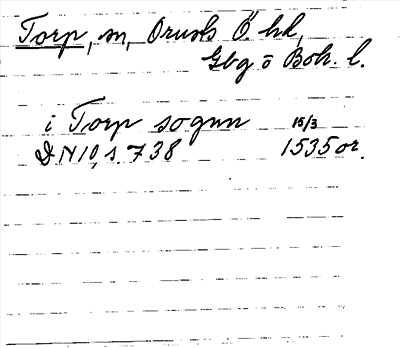 Torp, sn, Orusts Ö. hd,
Gbg o Boh. l.
i Torp sognn 15/3
DN 10, s. 738 1535 or.